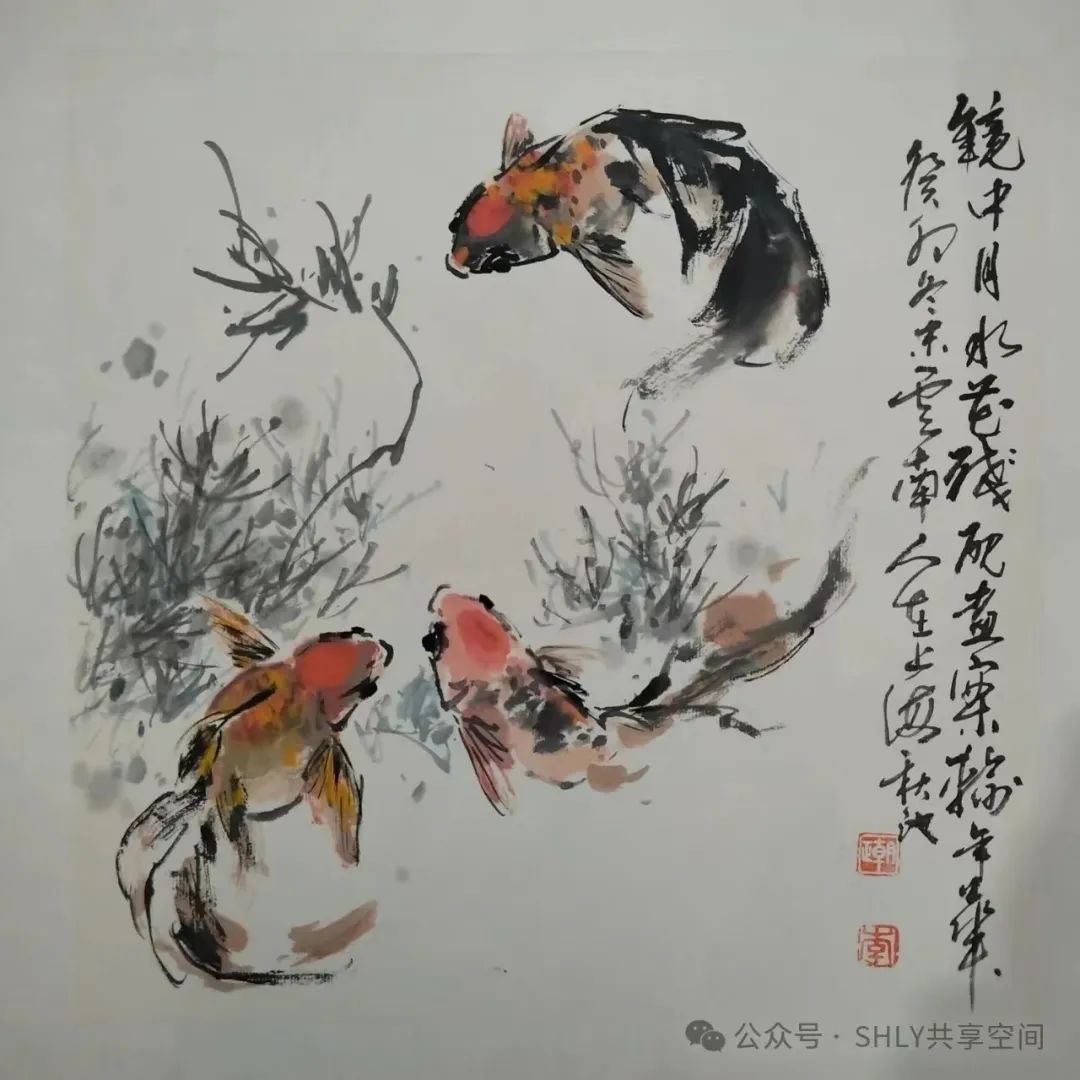 鏡中月水花殘年華
癸卯冬末雲南人在上海秋池
李
公众号 · SHLY共享空间